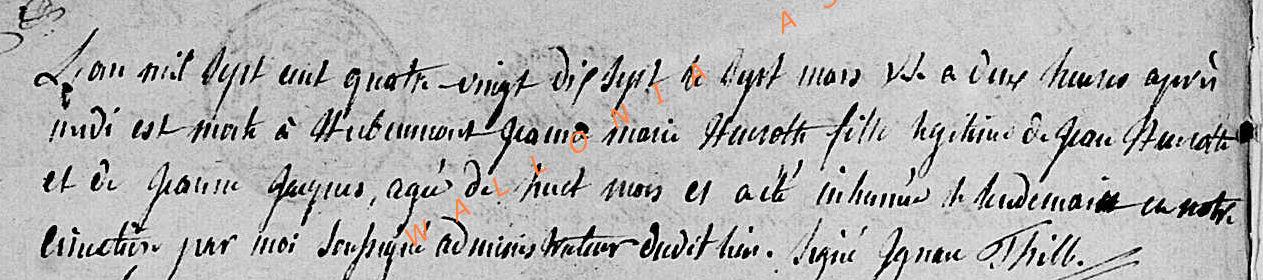 L'an mil sept cent quatre-vingt dix sept le sept mars v.s. a deux heures après
midi est morte à jeanne marie fille legitime de jean
et de jeanne jacques, agée de huit mois et a été inhumée le lendemain en notre
cimetière par moi soussigné administrateur dudit lieu. signé Ignace Thill.
WALLONIA AS